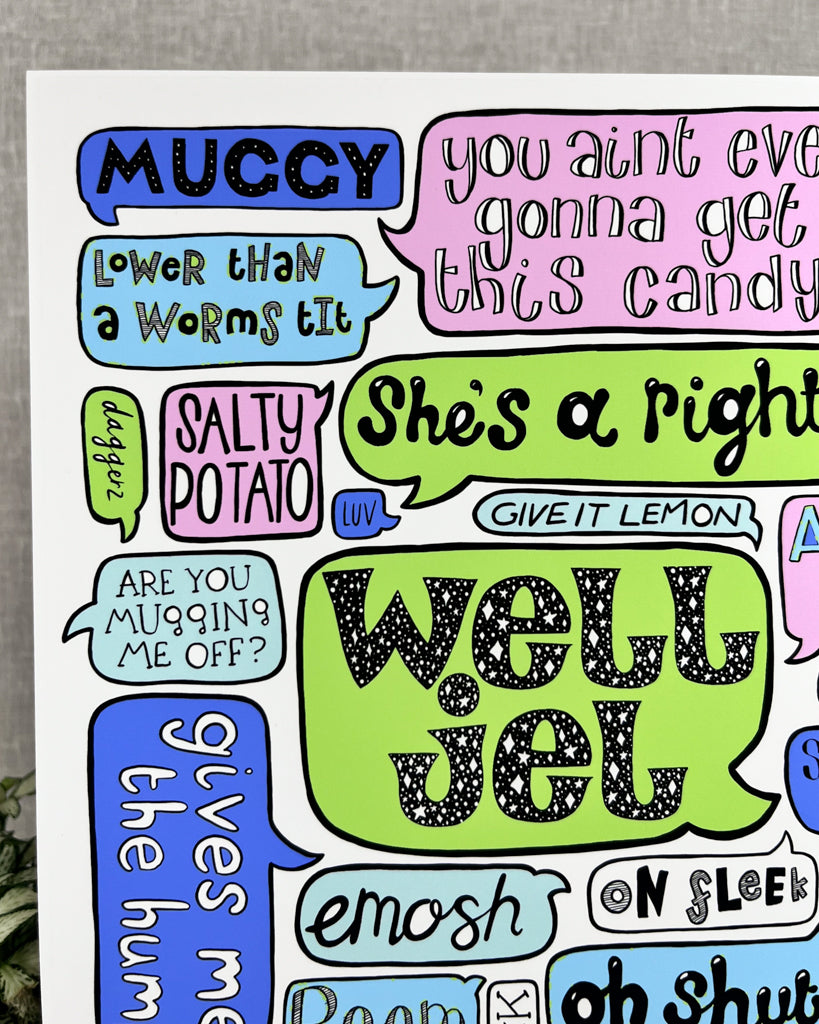 MUGGY
you aint eve
gonna get
this candy
LOWER tHAN
a WORMS tIt
She's a right
daggerz
SALTY
POTATO
LUV
GIVE IT LEMON
A
ARE YOU
MUggINg
ME OFF?
well
jel
S
gives me
the hum
emosh
ON fLEEK
oh shut